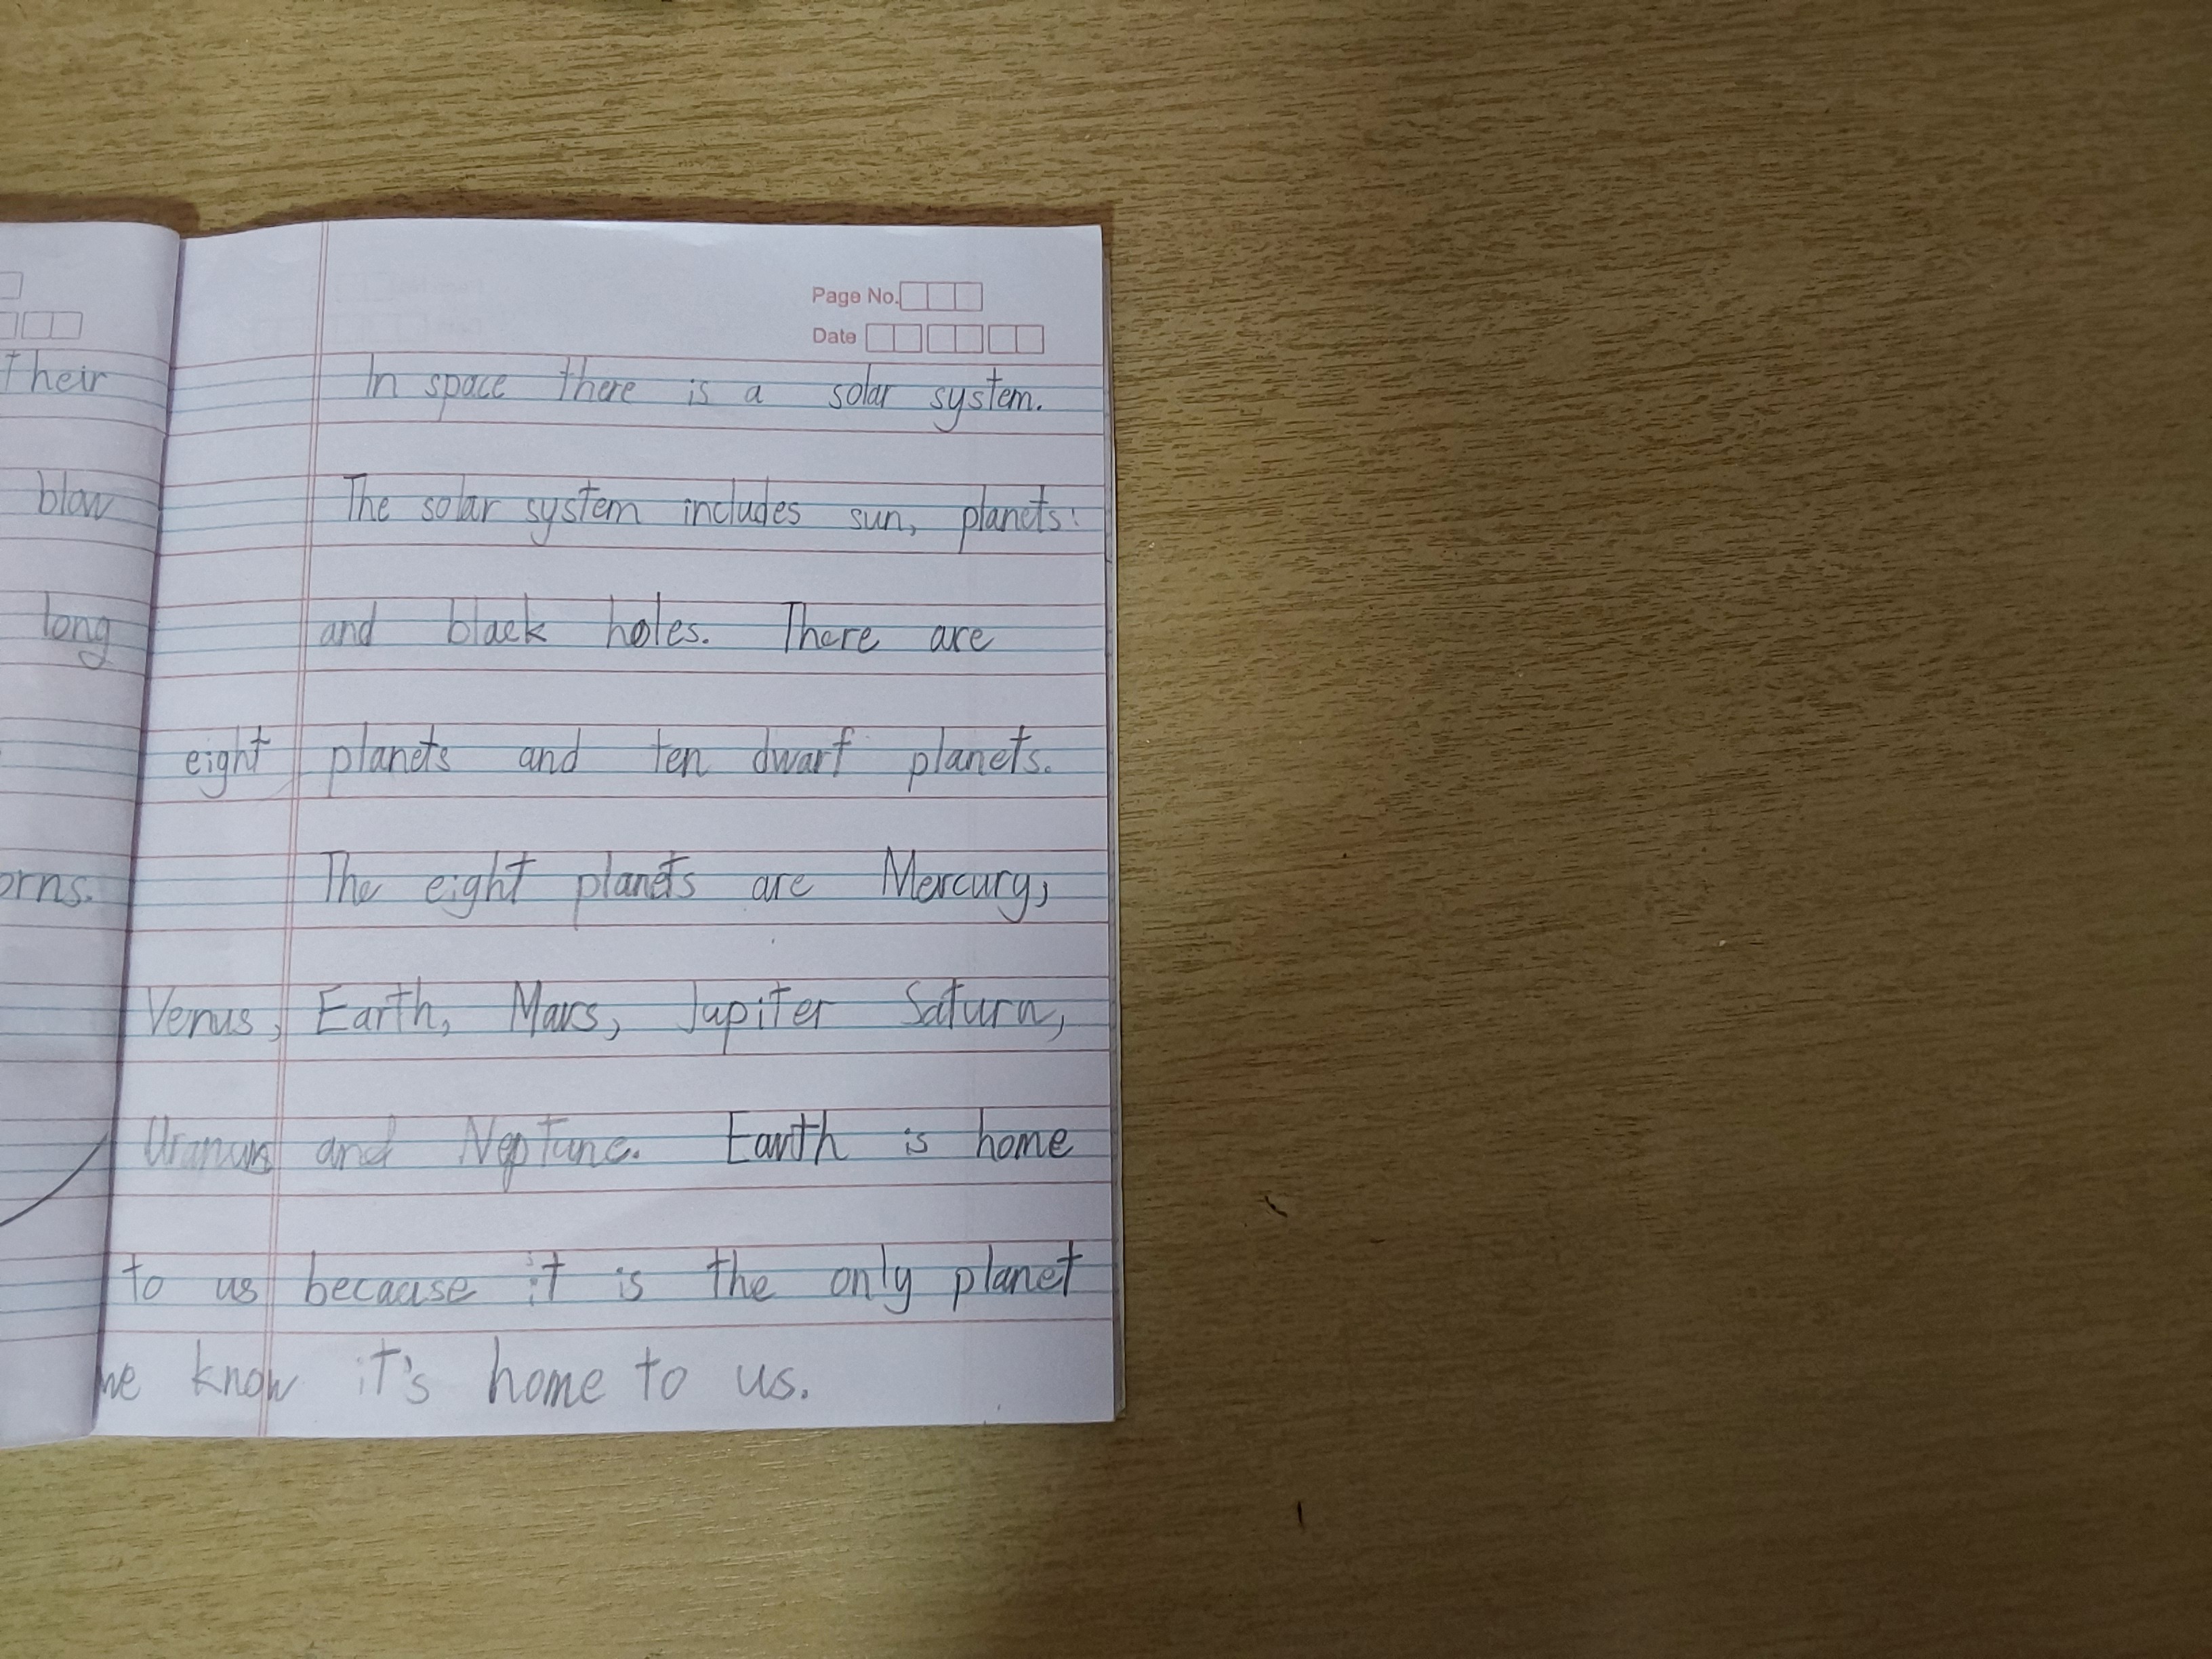 their
blow
long
orns.
Page No.
Date
In space there is a solar system.
The solar system includes sun, planets
and black holes. There are
eight planets and ten dwarf planets.
The eight planets are Mercury,
Venus, Earth, Mars, Jupiter Saturn,
Uranurs and Neptune. Earth is home
to us becaause it is the only planet
we know it's home to us.